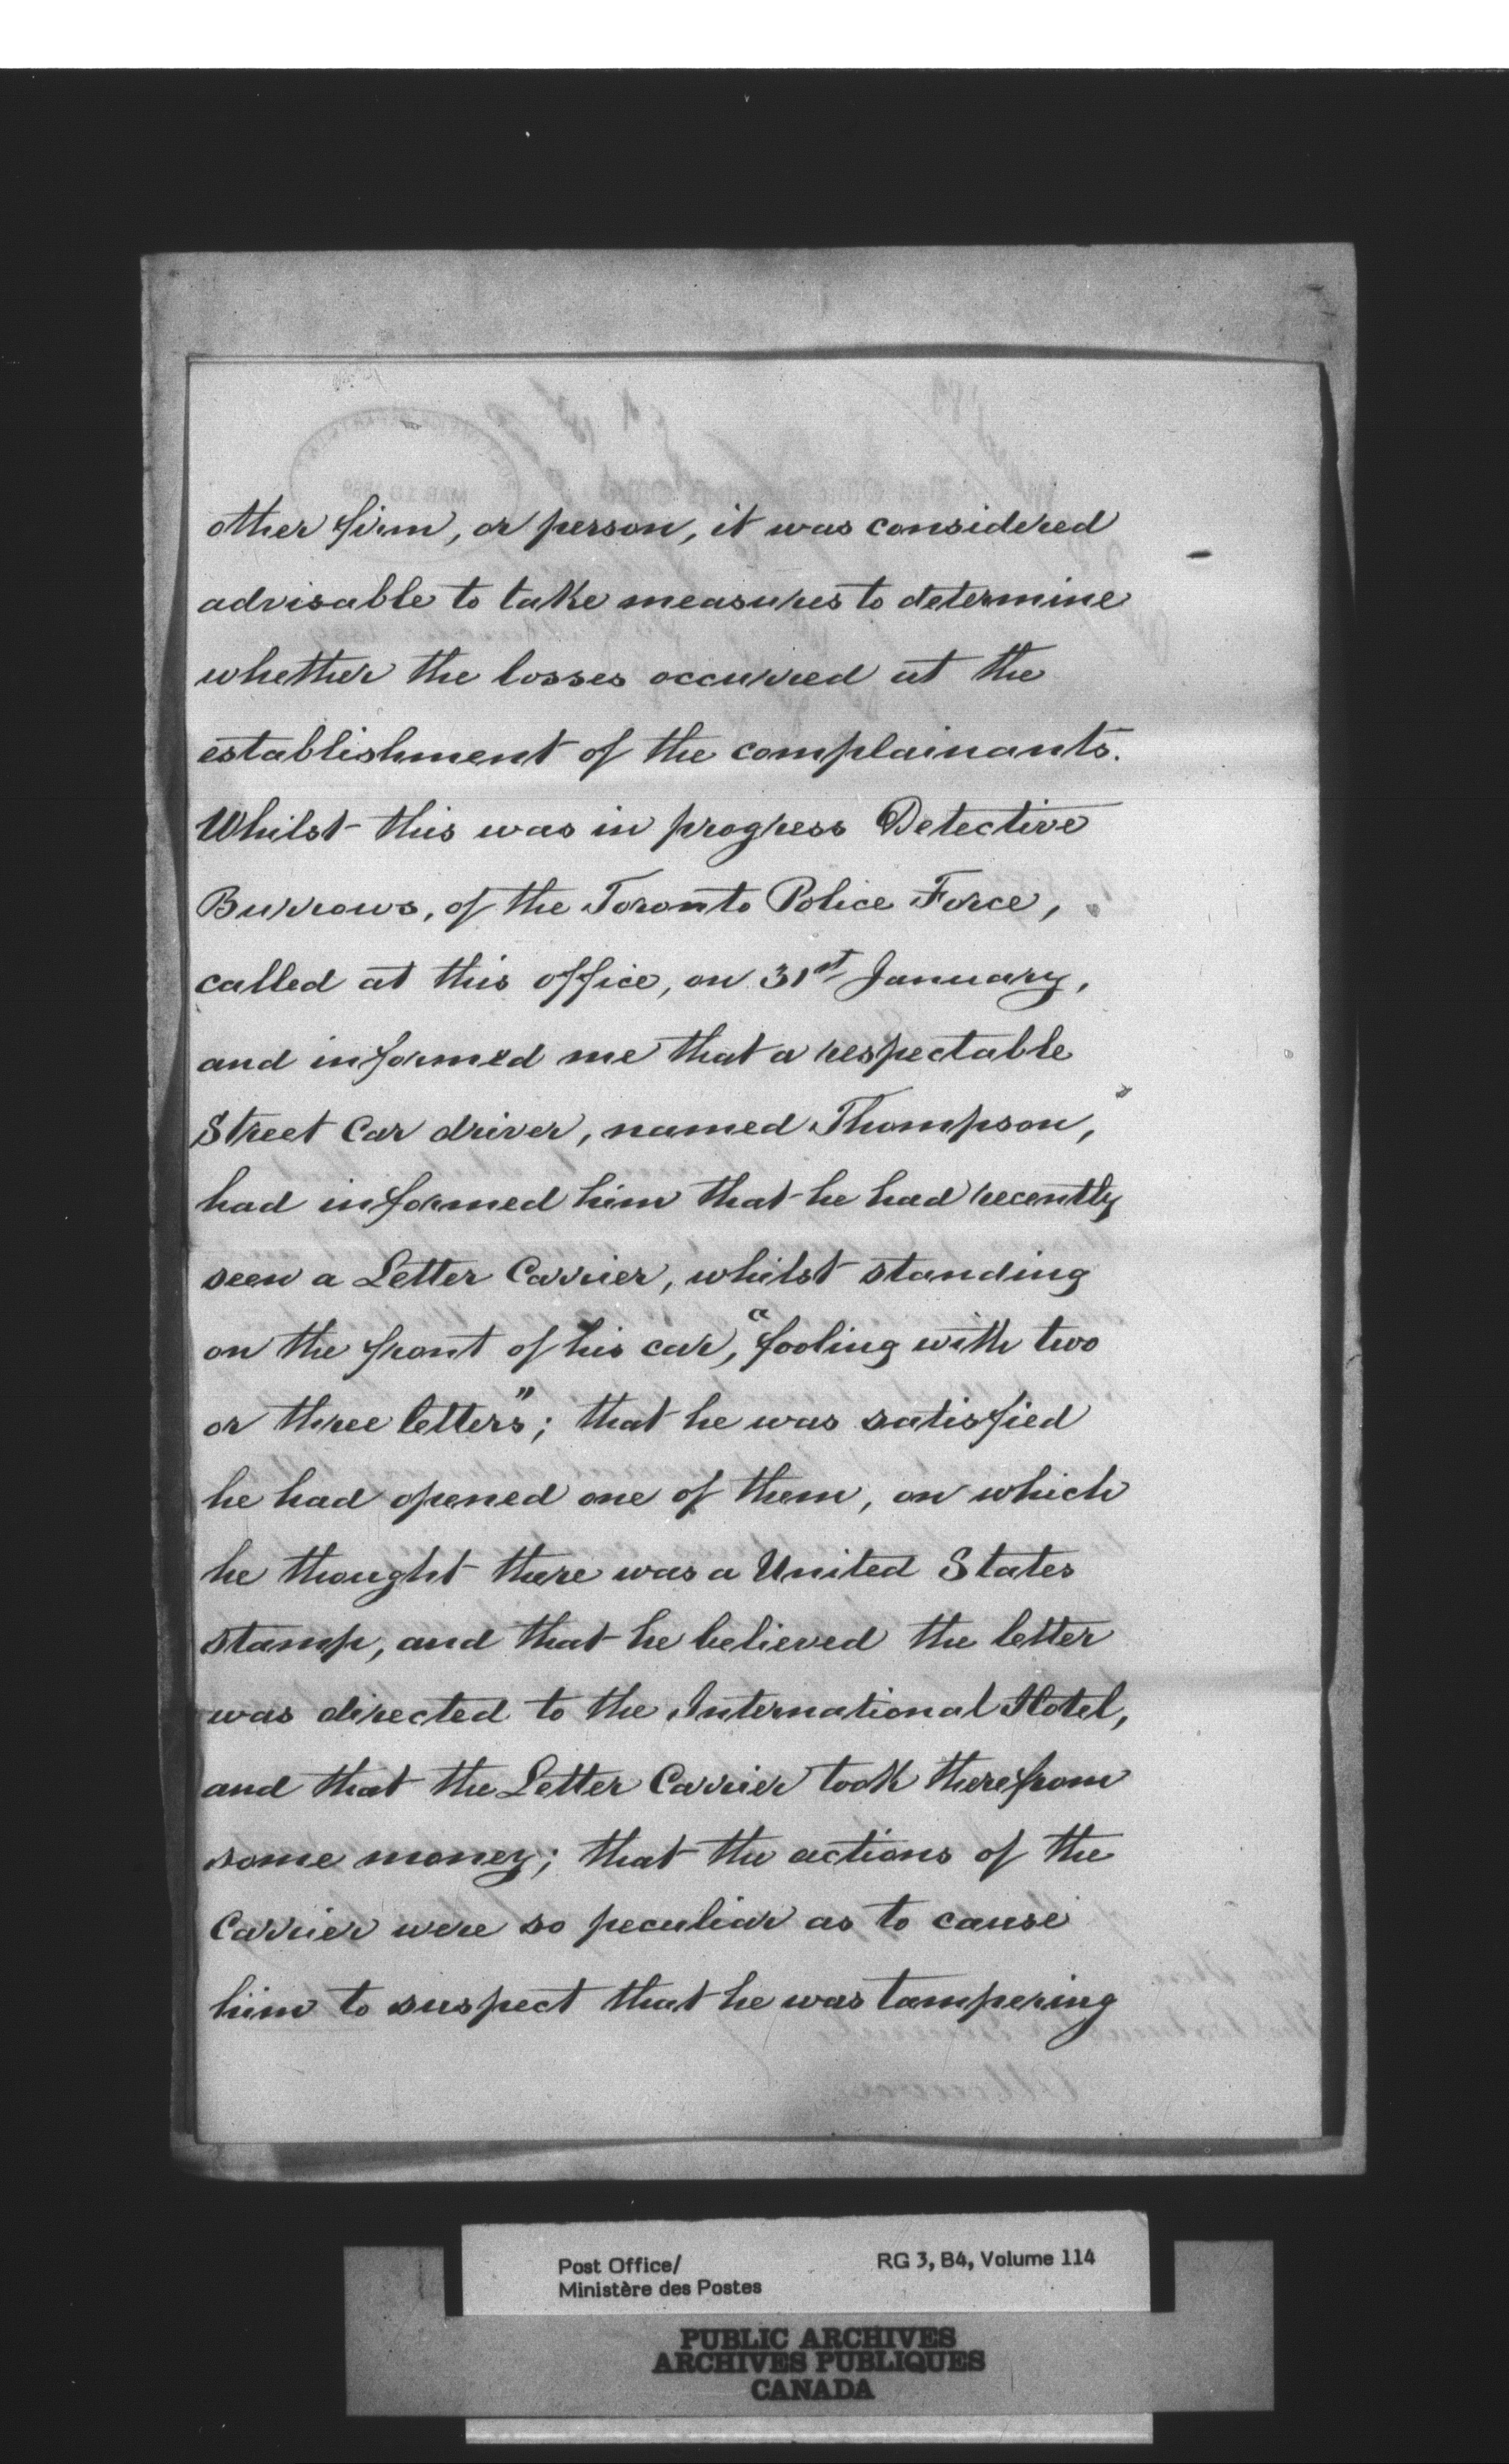 other firm, or person, it was considered
advisable to take measures to determine
whether the losses occurred at the
establishment of the complainants.
Whilst this was in progress Detective
Burrows, of the Toronto Police Force,
called at this office, on 31st January,
and informed me that a respectable
Street Car driver, named Thompson,
had informed him that he had recently
seen a Letter Carrier, whilst standing
on the front of his car, "fooling with two
or three letters"; that he was satisfied
he had opened one of them, on which
he thought there was a United States
stamp, and that he believed the letter
was directed to the International Hotel,
and that the Letter Carrier took therefrom
some money; that the actions of the
Carrier were so peculiar as to cause
him to suspect that he was tampering
Post Office/
Ministère des Postes
RG 3, B4, Volume 114
PUBLIC ARCHIVES
ARCHIVES PUBLIQUES
CANADA